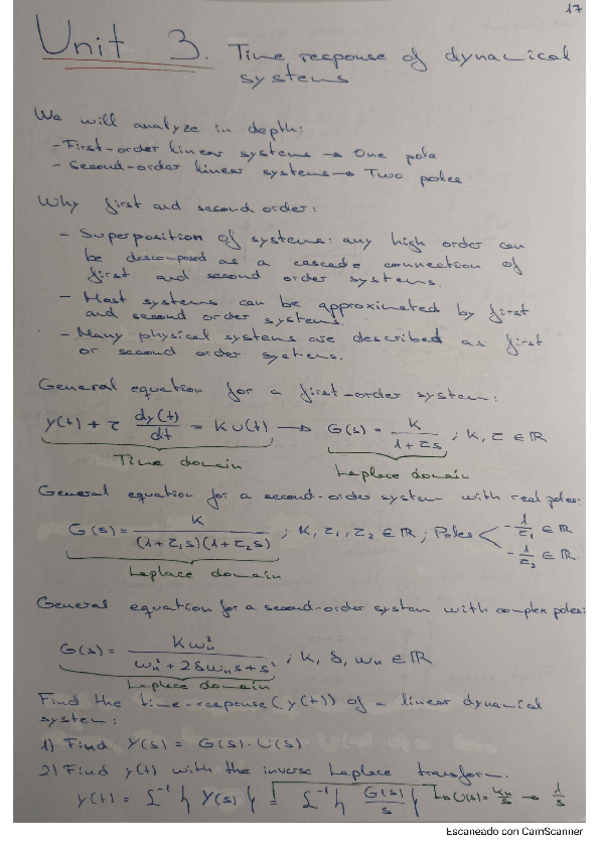 17
Unit 3. Time response of dynamical
systems
We will analyze in depth:
- First-order linear systems → One pole
- Second-order linear systems → Two poles
Why first and second order:
- Superposition of systems: any high order can
be descomposed as a cascade connection of
first and second order systems.
- Most systems can be approximated by first
and second order systems.
- Many physical systems are described as first
or second order systems.
General equation for a first-order system:
y(t) + τ dy(t)/dt = Ku(t) → G(s) = K/(1+τs) ; K, τ ∈ ℝ
Time domain
Laplace domain
General equation for a second-order system with real poles:
G(s) = K/((1+τ₁s)(1+τ₂s)) ; K, τ₁, τ₂ ∈ ℝ ; Poles < -1/τ₁ ∈ ℝ
-1/τ₂ ∈ ℝ
Laplace domain
General equation for a second-order system with complex poles:
G(s) = Kωn²/(ωn² + 2δωns + s²) ; K, δ, ωn ∈ ℝ
Laplace domain
Find the time-response (y(t)) of a linear dynamical
system:
1) Find Y(s) = G(s) · U(s)
2) Find y(t) with the inverse Laplace transform.
y(t) = ℒ⁻¹{Y(s)} = ℒ⁻¹{G(s)/s} U(s) = /s → 1/s
Escaneado con CamScanner